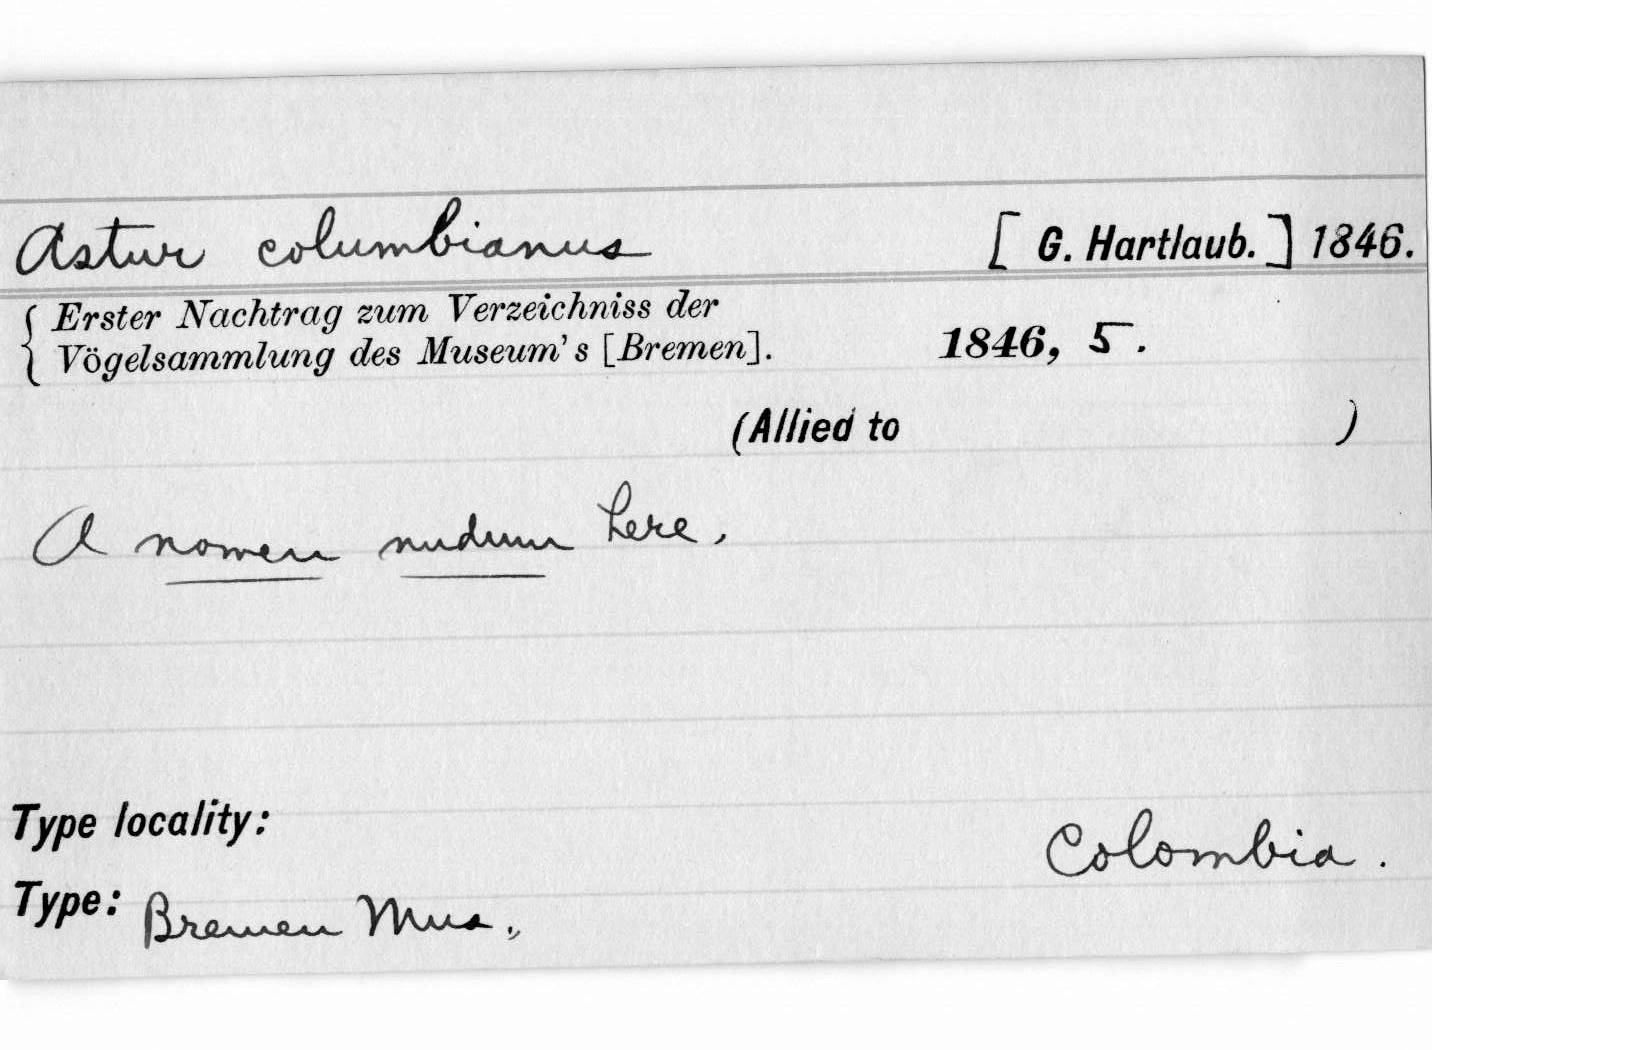 Astur columbianus [G. Hartlaub.] 1846.
Erster Nachtrag zum Verzeichniss der
Vögelsammlung des Museum's [Bremen]. 1846, 5.
(Allied to )
A nomen nudum here.
Type locality: Colombia.
Type: Bremen Mus.